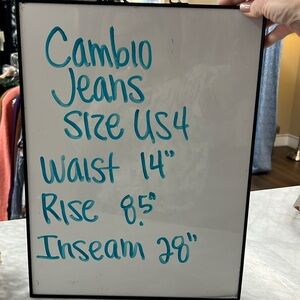 Cambio
Jeans
Size US4
Waist 14"
Rise 8.5"
Inseam 28"